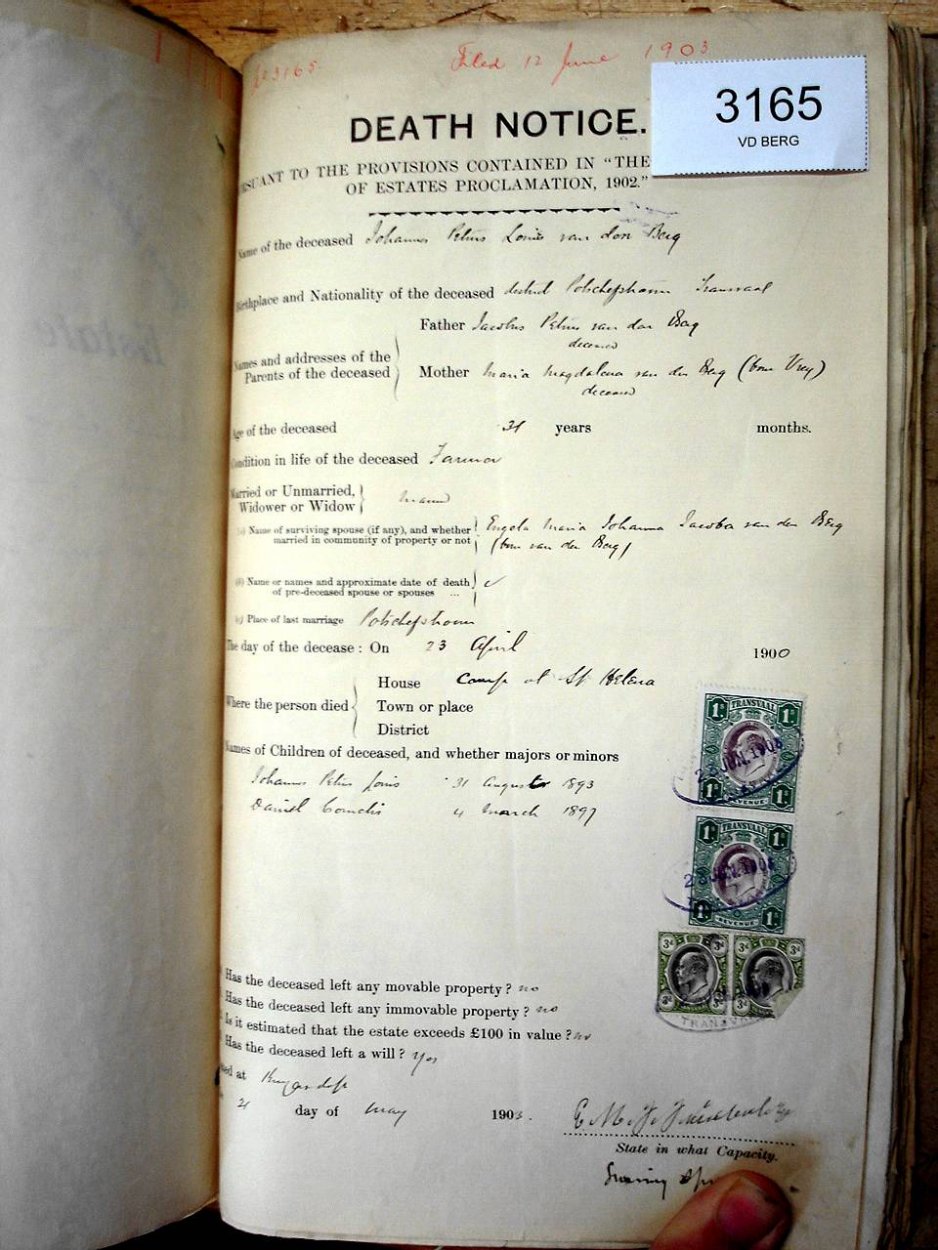 Filed 12 June 1903
3165
VD BERG
DEATH NOTICE.
PURSUANT TO THE PROVISIONS CONTAINED IN “THE
OF ESTATES PROCLAMATION, 1902.”
Name of the deceased Johannes Petrus Louis van den Berg
Birthplace and Nationality of the deceased district Potchefstroom Transvaal
Names and addresses of the Parents of the deceased
Father Jacobus Petrus van den Berg
deceased
Mother Maria Magdalena van den Berg (born Vrey)
deceased
Age of the deceased 31 years months.
Condition in life of the deceased Farmer
Married or Unmarried, Widower or Widow married
(a) Name of surviving spouse (if any), and whether married in community of property or not
Engela Maria Johanna Jacoba van den Berg
(born van den Berg)
(b) Name or names and approximate date of death
of pre-deceased spouse or spouses ...
(c) Place of last marriage Potchefstroom
The day of the decease: On 23 April 1900
Where the person died
House Camp at St Helena
Town or place
District
Names of Children of deceased, and whether majors or minors
Johannes Petrus Louis 31 August 1893
Daniel Cornelis 4 March 1897
TRANSVAAL
1s 1s
1s 1s
REVENUE
TRANSVAAL
1s 1s
1s 1s
REVENUE
3d 3d 3d 3d
TRANSV
Has the deceased left any movable property? no
Has the deceased left any immovable property? no
Is it estimated that the estate exceeds £100 in value? no
Has the deceased left a will? Yes
Krugersdorp
day of May 1903.
State in what Capacity.
Surviving